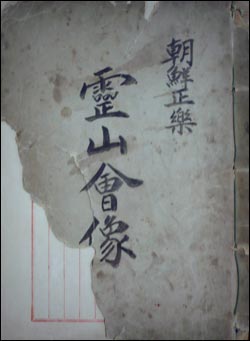 朝鮮正樂
靈山會像